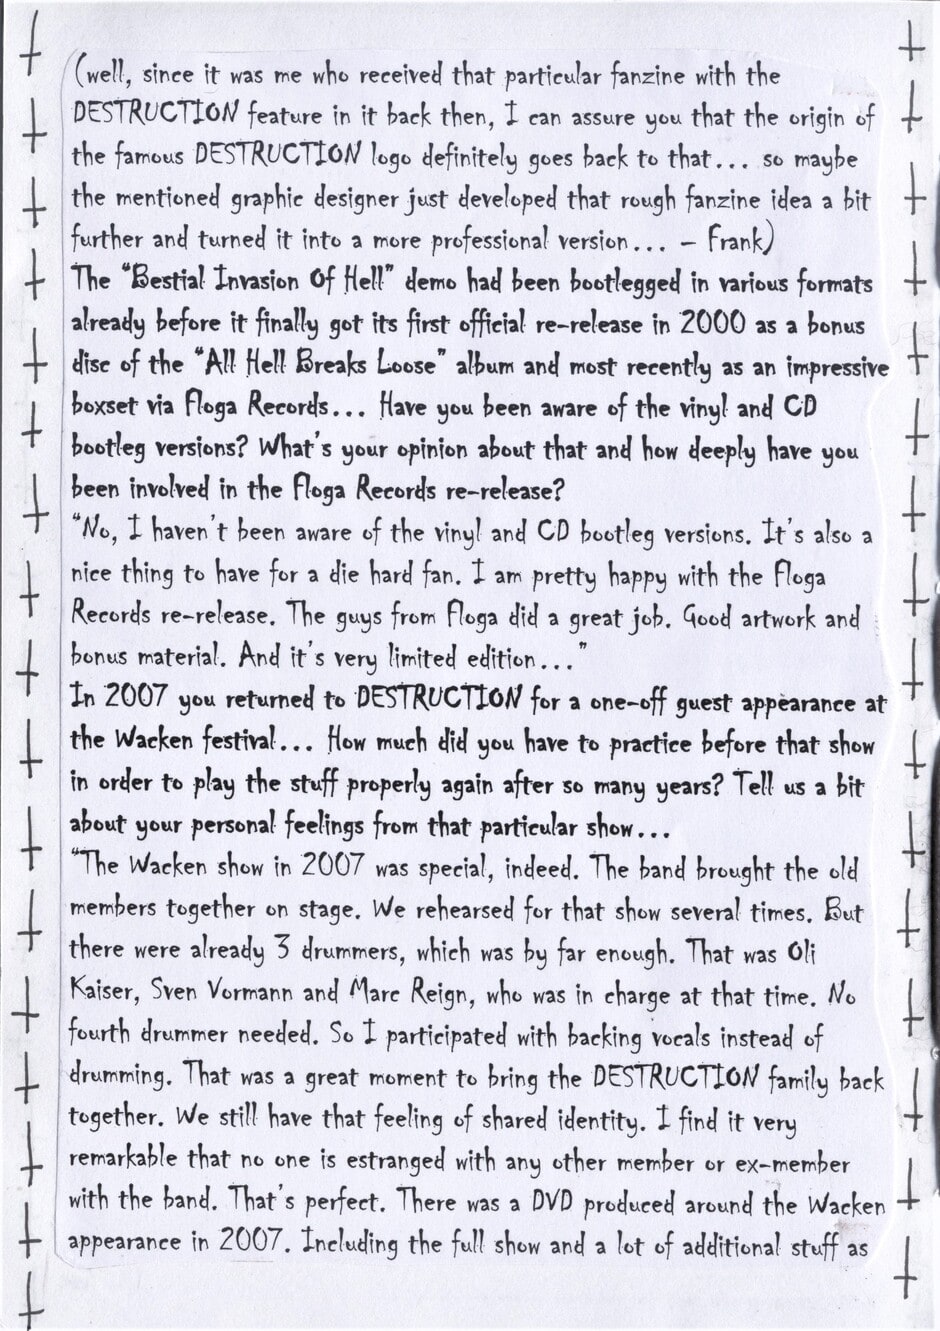 (well, since it was me who received that particular fanzine with the
DESTRUCTION feature in it back then, I can assure you that the origin of
the famous DESTRUCTION logo definitely goes back to that... so maybe
the mentioned graphic designer just developed that rough fanzine idea a bit
further and turned it into a more professional version... – Frank)
The “Bestial Invasion Of Hell” demo had been bootlegged in various formats
already before it finally got its first official re-release in 2000 as a bonus
disc of the “All Hell Breaks Loose” album and most recently as an impressive
boxset via Floga Records... Have you been aware of the vinyl and CD
bootleg versions? What's your opinion about that and how deeply have you
been involved in the Floga Records re-release?
“No, I haven't been aware of the vinyl and CD bootleg versions. It's also a
nice thing to have for a die hard fan. I am pretty happy with the Floga
Records re-release. The guys from Floga did a great job. Good artwork and
bonus material. And it's very limited edition...”
In 2007 you returned to DESTRUCTION for a one-off guest appearance at
the Wacken festival... How much did you have to practice before that show
in order to play the stuff properly again after so many years? Tell us a bit
about your personal feelings from that particular show...
“The Wacken show in 2007 was special, indeed. The band brought the old
members together on stage. We rehearsed for that show several times. But
there were already 3 drummers, which was by far enough. That was Oli
Kaiser, Sven Vormann and Marc Reign, who was in charge at that time. No
fourth drummer needed. So I participated with backing vocals instead of
drumming. That was a great moment to bring the DESTRUCTION family back
together. We still have that feeling of shared identity. I find it very
remarkable that no one is estranged with any other member or ex-member
with the band. That's perfect. There was a DVD produced around the Wacken
appearance in 2007. Including the full show and a lot of additional stuff as